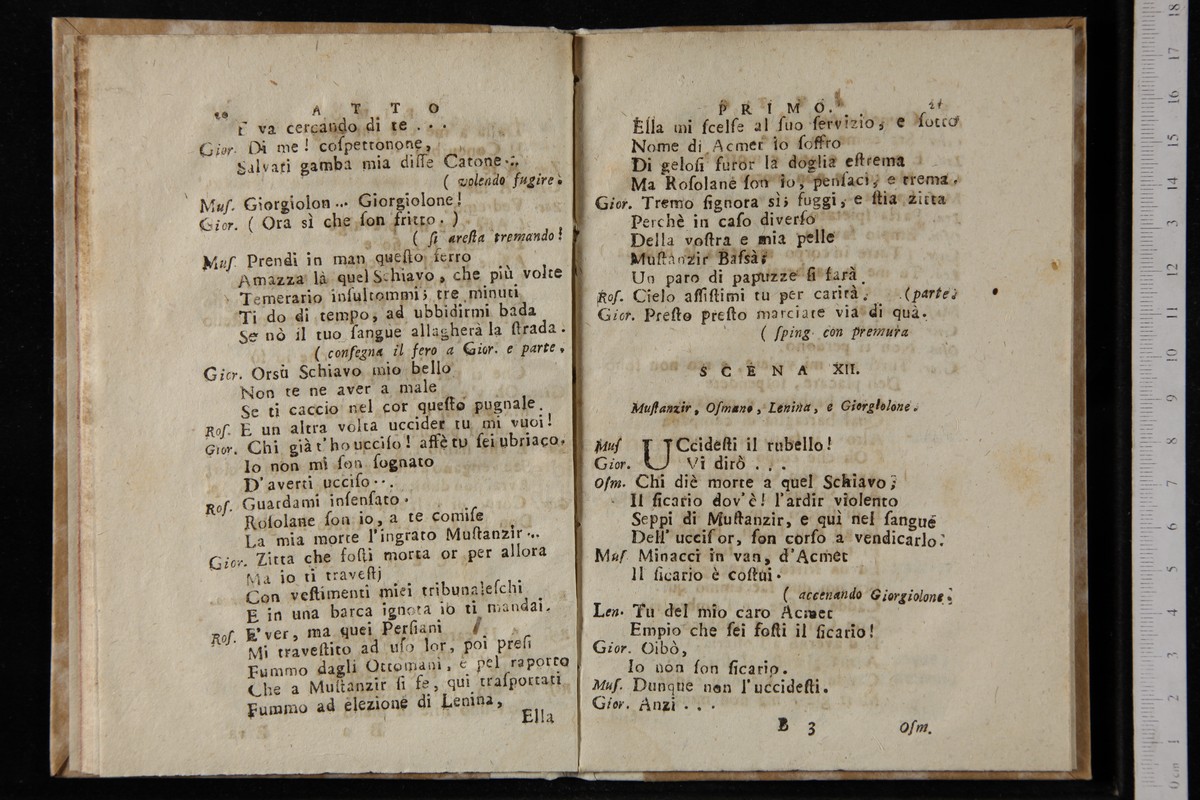 20 A T T O
E va cercando di te . . .
Gior. Di me ! coſpettonone,
Salvati gamba mia diſſe Catone...
( volendo fugire.
Muſ. Giorgiolon... Giorgiolone!
Gior. ( Ora sì che ſon fritto. )
( ſi areſta tremando!
Muſ. Prendi in man queſto ferro
Amazza là quel Schiavo, che più volte
Temerario inſultommi; tre minuti
Ti do di tempo, ad ubbidirmi bada
Se nò il tuo ſangue allagherà la ſtrada.
( conſegna il fero a Gior. e parte.
Gior. Orsù Schiavo mio bello
Non te ne aver a male
Se ti caccio nel cor queſto pugnale.
Roſ. E un altra volta uccider tu mi vuoi!
Gior. Chi già t'ho ucciſo! affè tu ſei ubriaco.
Io non mi ſon ſognato
D'averti ucciſo...
Roſ. Guardami inſenſato.
Roſolane ſon io, a te comiſe
La mia morte l'ingrato Muſtanzir...
Gior. Zitta che foſti morta or per allora
Ma io ti traveſtj
Con veſtimenti miei tribunaleſchi
E in una barca ignota io ti mandai.
Roſ. E'ver, ma quei Perſiani
Mi traveſtito ad uſo lor, poi preſi
Fummo dagli Ottomani, e pel raporto
Che a Muſtanzir ſi fe, qui traſportati
Fummo ad elezione di Lenina,
Ella
P R I M O. 21
Ella mi ſcelſe al ſuo ſervizio, e ſotto
Nome di Acmet io ſoffro
Di geloſi furor la doglia eſtrema
Ma Roſolane ſon io, penſaci, e trema.
Gior. Tremo ſignora sì; fuggi, e ſtia zitta
Perchè in caſo diverſo
Della voſtra e mia pelle
Muſtanzir Baſsà;
Un paro di papuzze ſi farà.
Roſ. Cielo aſſiſtimi tu per carità. (parte.
Gior. Preſto preſto marciate via di quà.
( ſping con premura
S C E N A XII.
Muſtanzir, Oſmano, Lenina, e Giorgiolone.
Muſ UCcideſti il rubello!
Gior. Vi dirò . . .
Oſm. Chi diè morte a quel Schiavo;
Il ſicario dov'è! l'ardir violento
Seppi di Muſtanzir, e quì nel ſangue
Dell' ucciſor, ſon corſo a vendicarlo.
Muſ Minacci in van, d'Acmet
Il ſicario è coſtui.
( accenando Giorgiolone;
Len. Tu del mio caro Acmet
Empio che ſei foſti il ſicario!
Gior. Oibò,
Io non ſon ſicario.
Muſ. Dunque non l'uccideſti.
Gior. Anzi . . .
B 3 Oſm.
0 cm 1 2 3 4 5 6 7 8 9 10 11 12 13 14 15 16 17 18